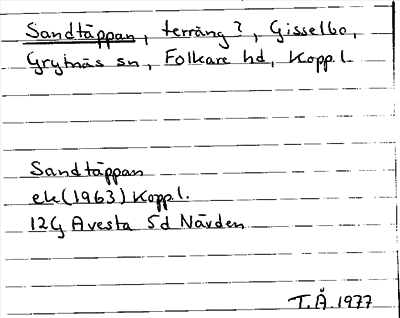 Sandtäppan, terräng?, Gisselbo,
Grytnäs sn, Folkare hd, Kopp.l.
Sandtäppan
ek(1963) Kopp.l.
12G Avesta 5d Nävden
T.Å.1977